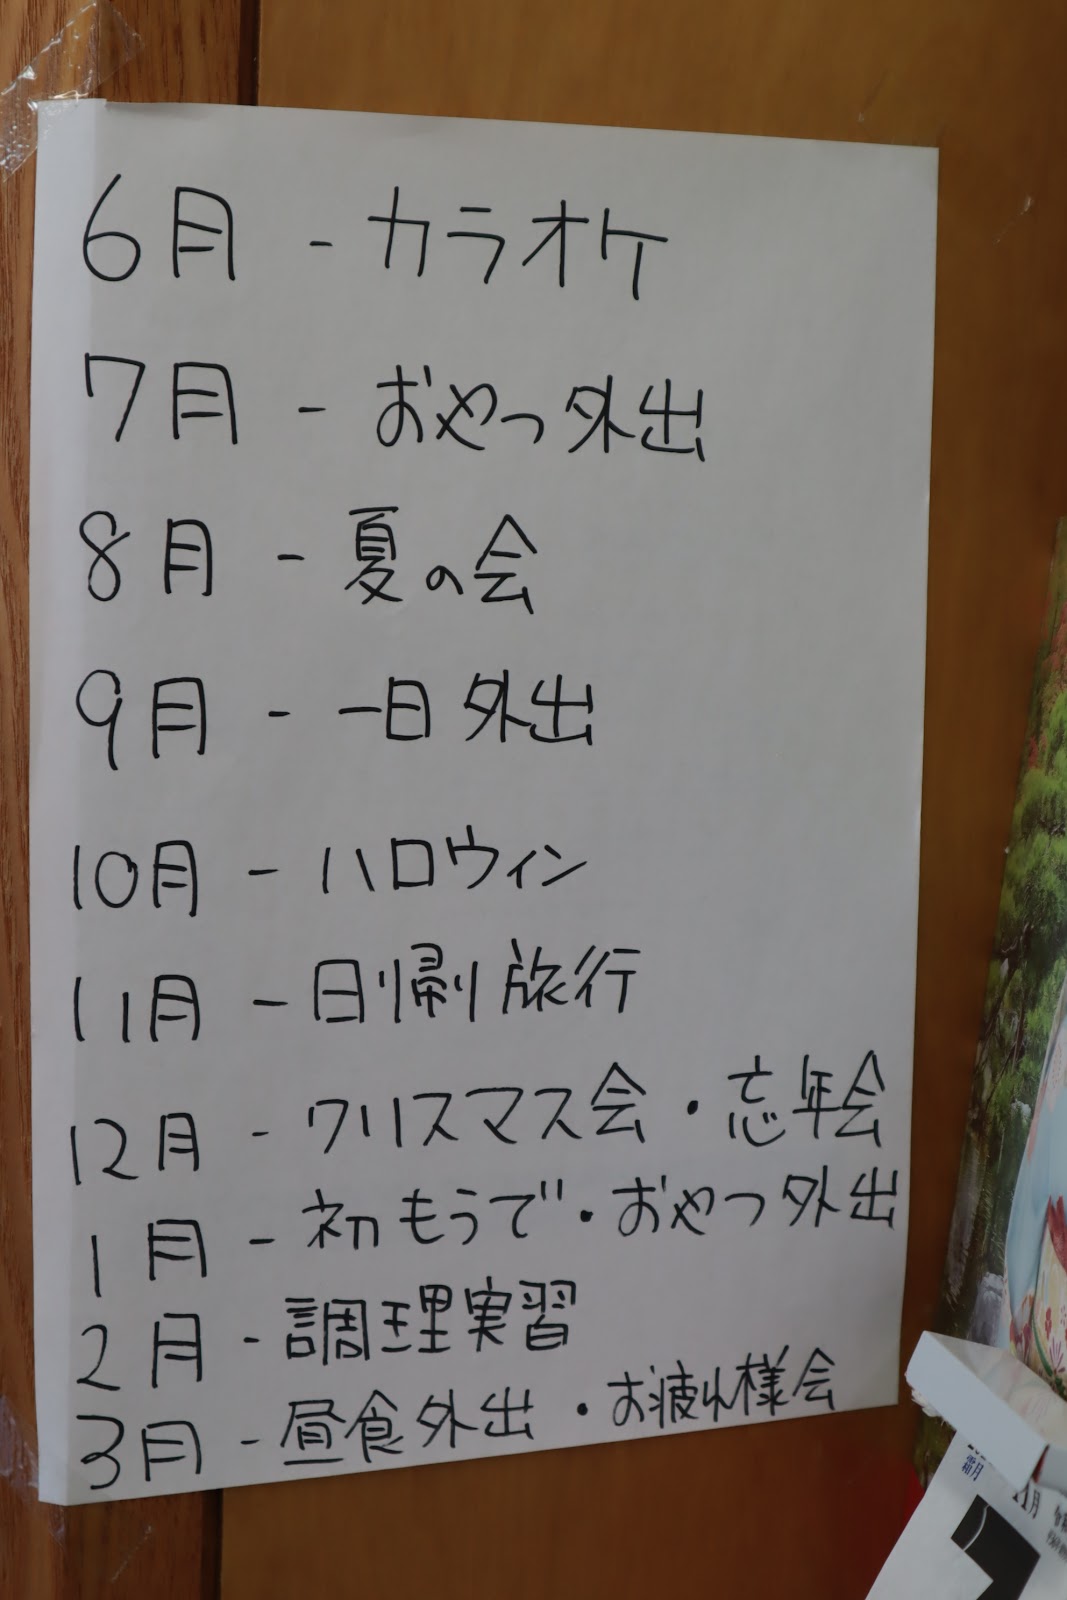 6月 - カラオケ
7月 - おやつ外出
8月 - 夏の会
9月 - 一日外出
10月 - ハロウィン
11月 - 日帰り旅行
12月 - クリスマス会・忘年会
1月 - 初もうで・おやつ外出
2月 - 調理実習
3月 - 昼食外出・お疲れ様会
霜月
11月